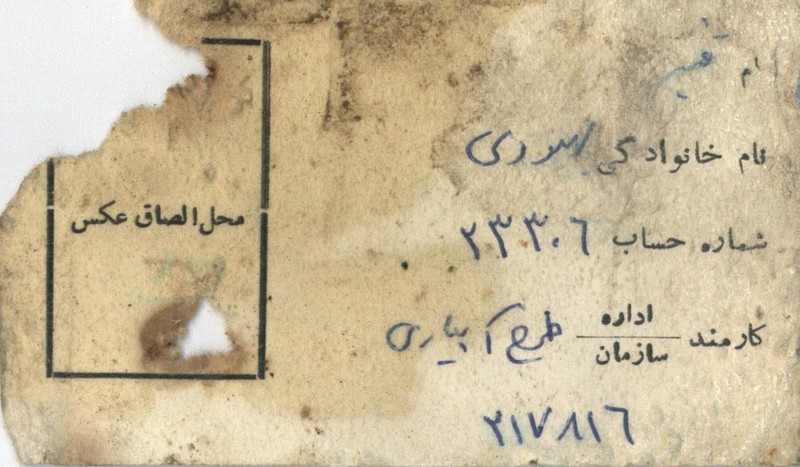 نام
نام خانوادگی
شماره حساب ۲۳۳۰۶
محل الصاق عکس
کارمند اداره
سازمان طرح آبیاری
۳۱۷۸۱۶